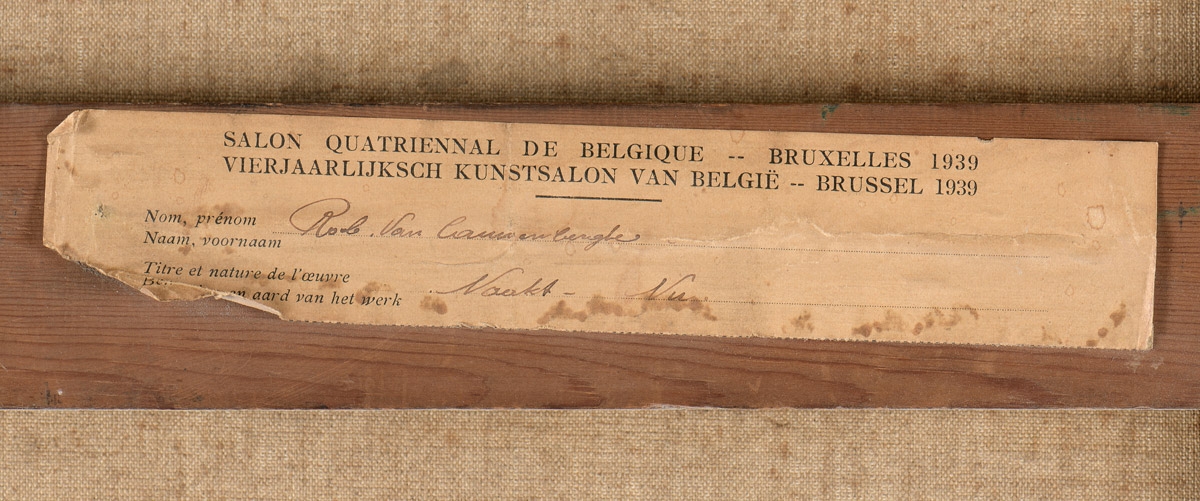 SALON QUATRIENNAL DE BELGIQUE -- BRUXELLES 1939
VIERJAARLIJKSCH KUNSTSALON VAN BELGIË -- BRUSSEL 1939
Nom, prénom
Naam, voornaam
Rob. Van Cauwenberghe
Titre et nature de l'œuvre
en aard van het werk
Naakt - Nu